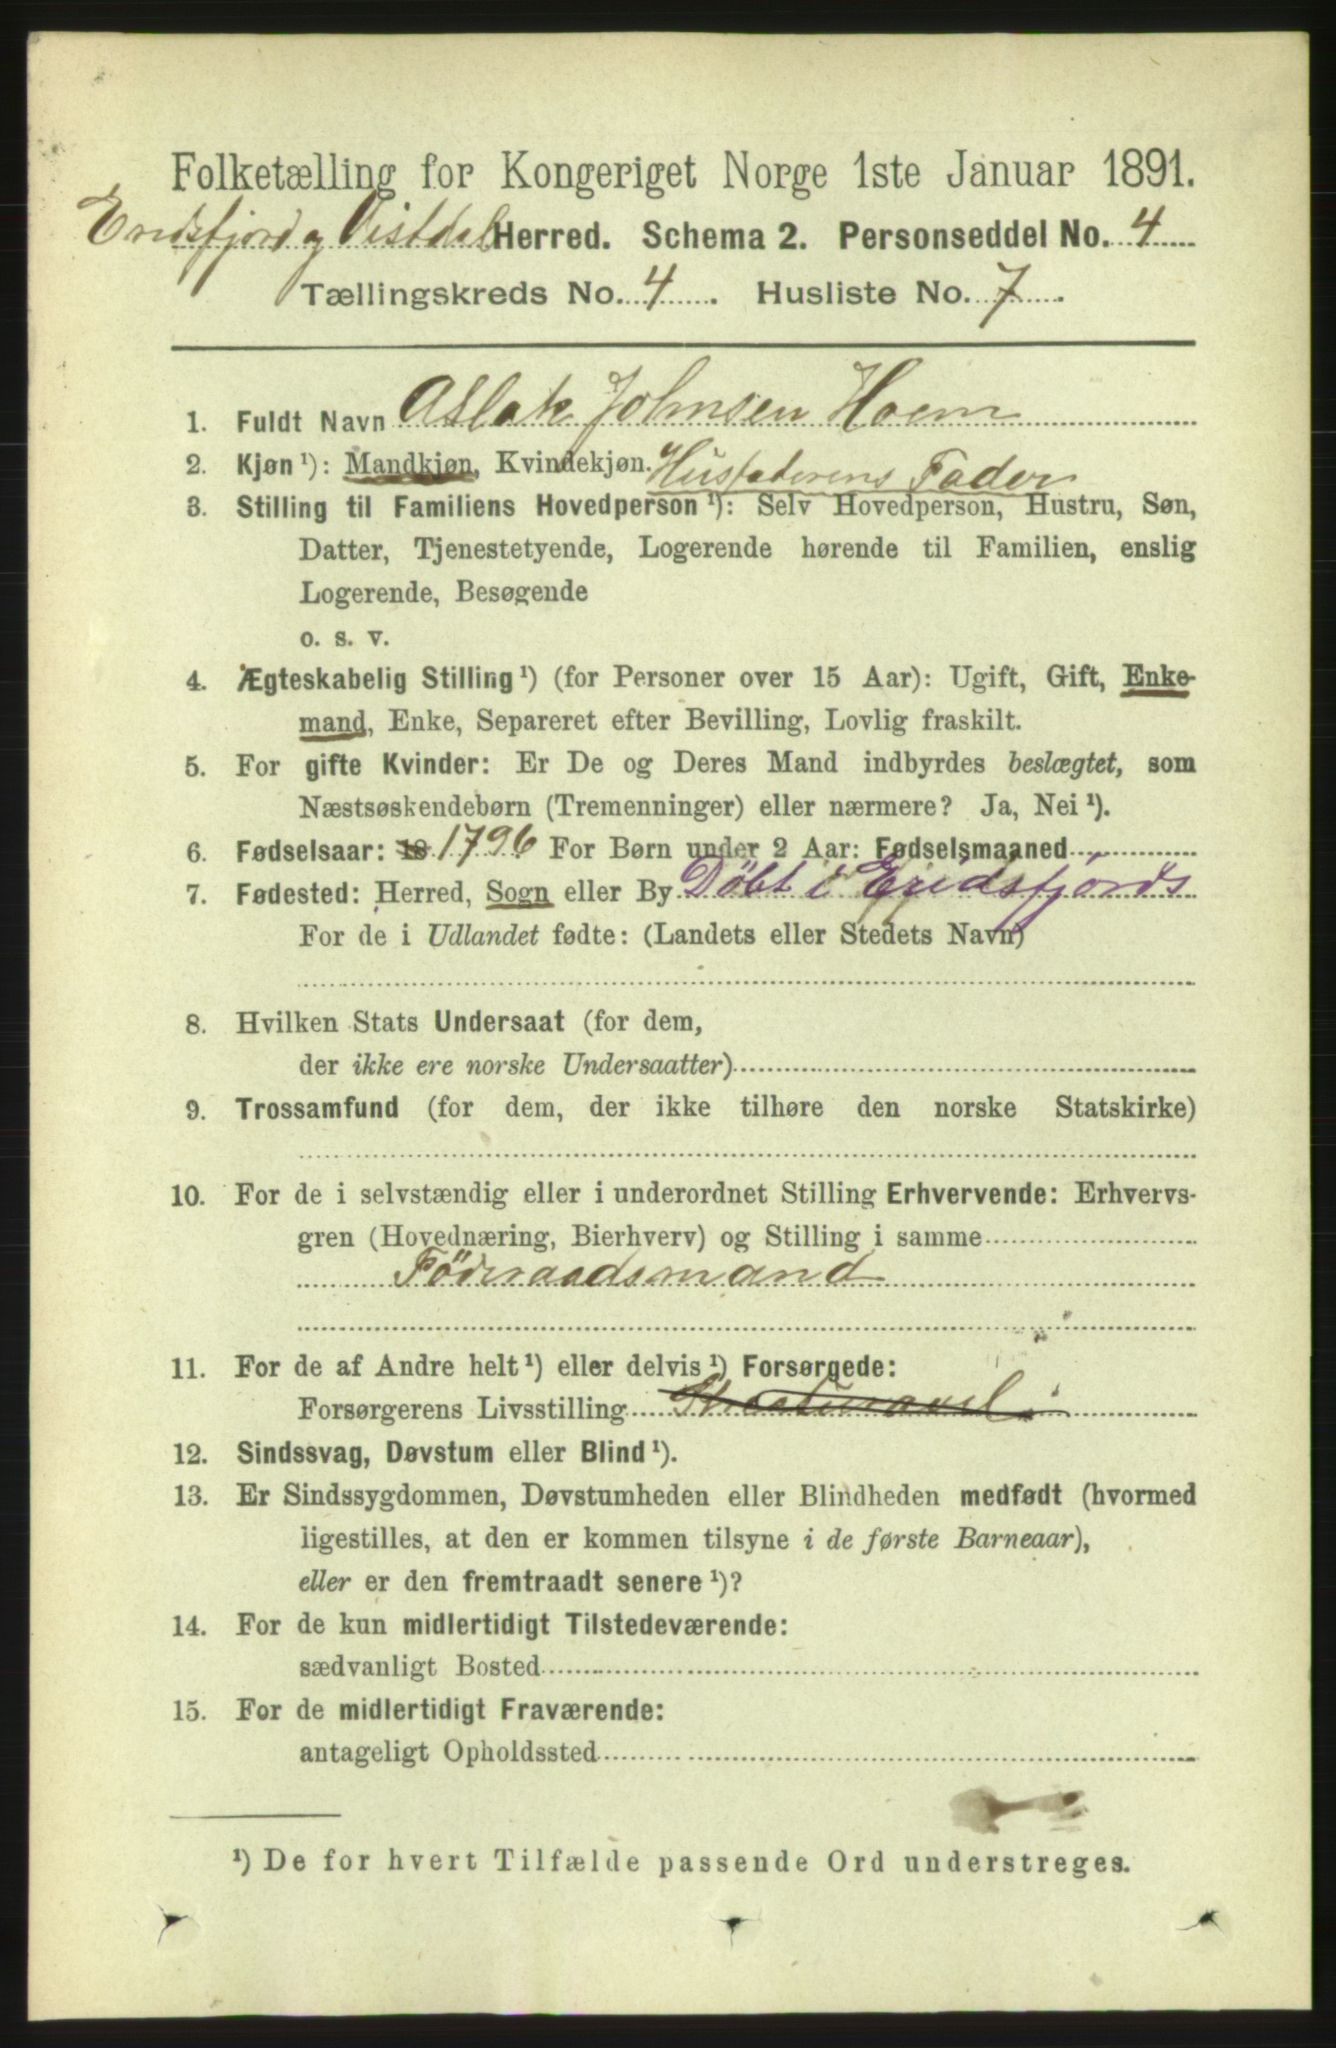 Folketælling for Kongeriget Norge 1ste Januar 1891.
Eridsfjord og Vistdal Herred. Schema 2. Personseddel No. 4
Tællingskreds No. 4. Husliste No. 7.
1. Fuldt Navn Aslak Johnsen Hoem
2. Kjøn¹): Mandkjøn, Kvindekjøn. Husfaderens Fader
3. Stilling til Familiens Hovedperson¹): Selv Hovedperson, Hustru, Søn,
Datter, Tjenestetyende, Logerende hørende til Familien, enslig
Logerende, Besøgende
o. s. v.
4. Ægteskabelig Stilling¹) (for Personer over 15 Aar): Ugift, Gift, Enke-
mand, Enke, Separeret efter Bevilling, Lovlig fraskilt.
5. For gifte Kvinder: Er De og Deres Mand indbyrdes beslægtet, som
Næstsøskendebørn (Tremenninger) eller nærmere? Ja, Nei¹).
6. Fødselsaar: 18 1796 For Børn under 2 Aar: Fødselsmaaned
7. Fødested: Herred, Sogn eller By Döbt i Eridsfjords
For de i Udlandet fødte: (Landets eller Stedets Navn)
8. Hvilken Stats Undersaat (for dem,
der ikke ere norske Undersaatter)
9. Trossamfund (for dem, der ikke tilhøre den norske Statskirke)
10. For de i selvstændig eller i underordnet Stilling Erhvervende: Erhvervs-
gren (Hovednæring, Bierhverv) og Stilling i samme
Föderaadsmand
11. For de af Andre helt¹) eller delvis¹) Forsørgede:
Forsørgerens Livsstilling
12. Sindssvag, Døvstum eller Blind¹).
13. Er Sindssygdommen, Døvstumheden eller Blindheden medfødt (hvormed
ligestilles, at den er kommen tilsyne i de første Barneaar),
eller er den fremtraadt senere¹)?
14. For de kun midlertidigt Tilstedeværende:
sædvanligt Bosted
15. For de midlertidigt Fraværende:
antageligt Opholdssted
¹) De for hvert Tilfælde passende Ord understreges.